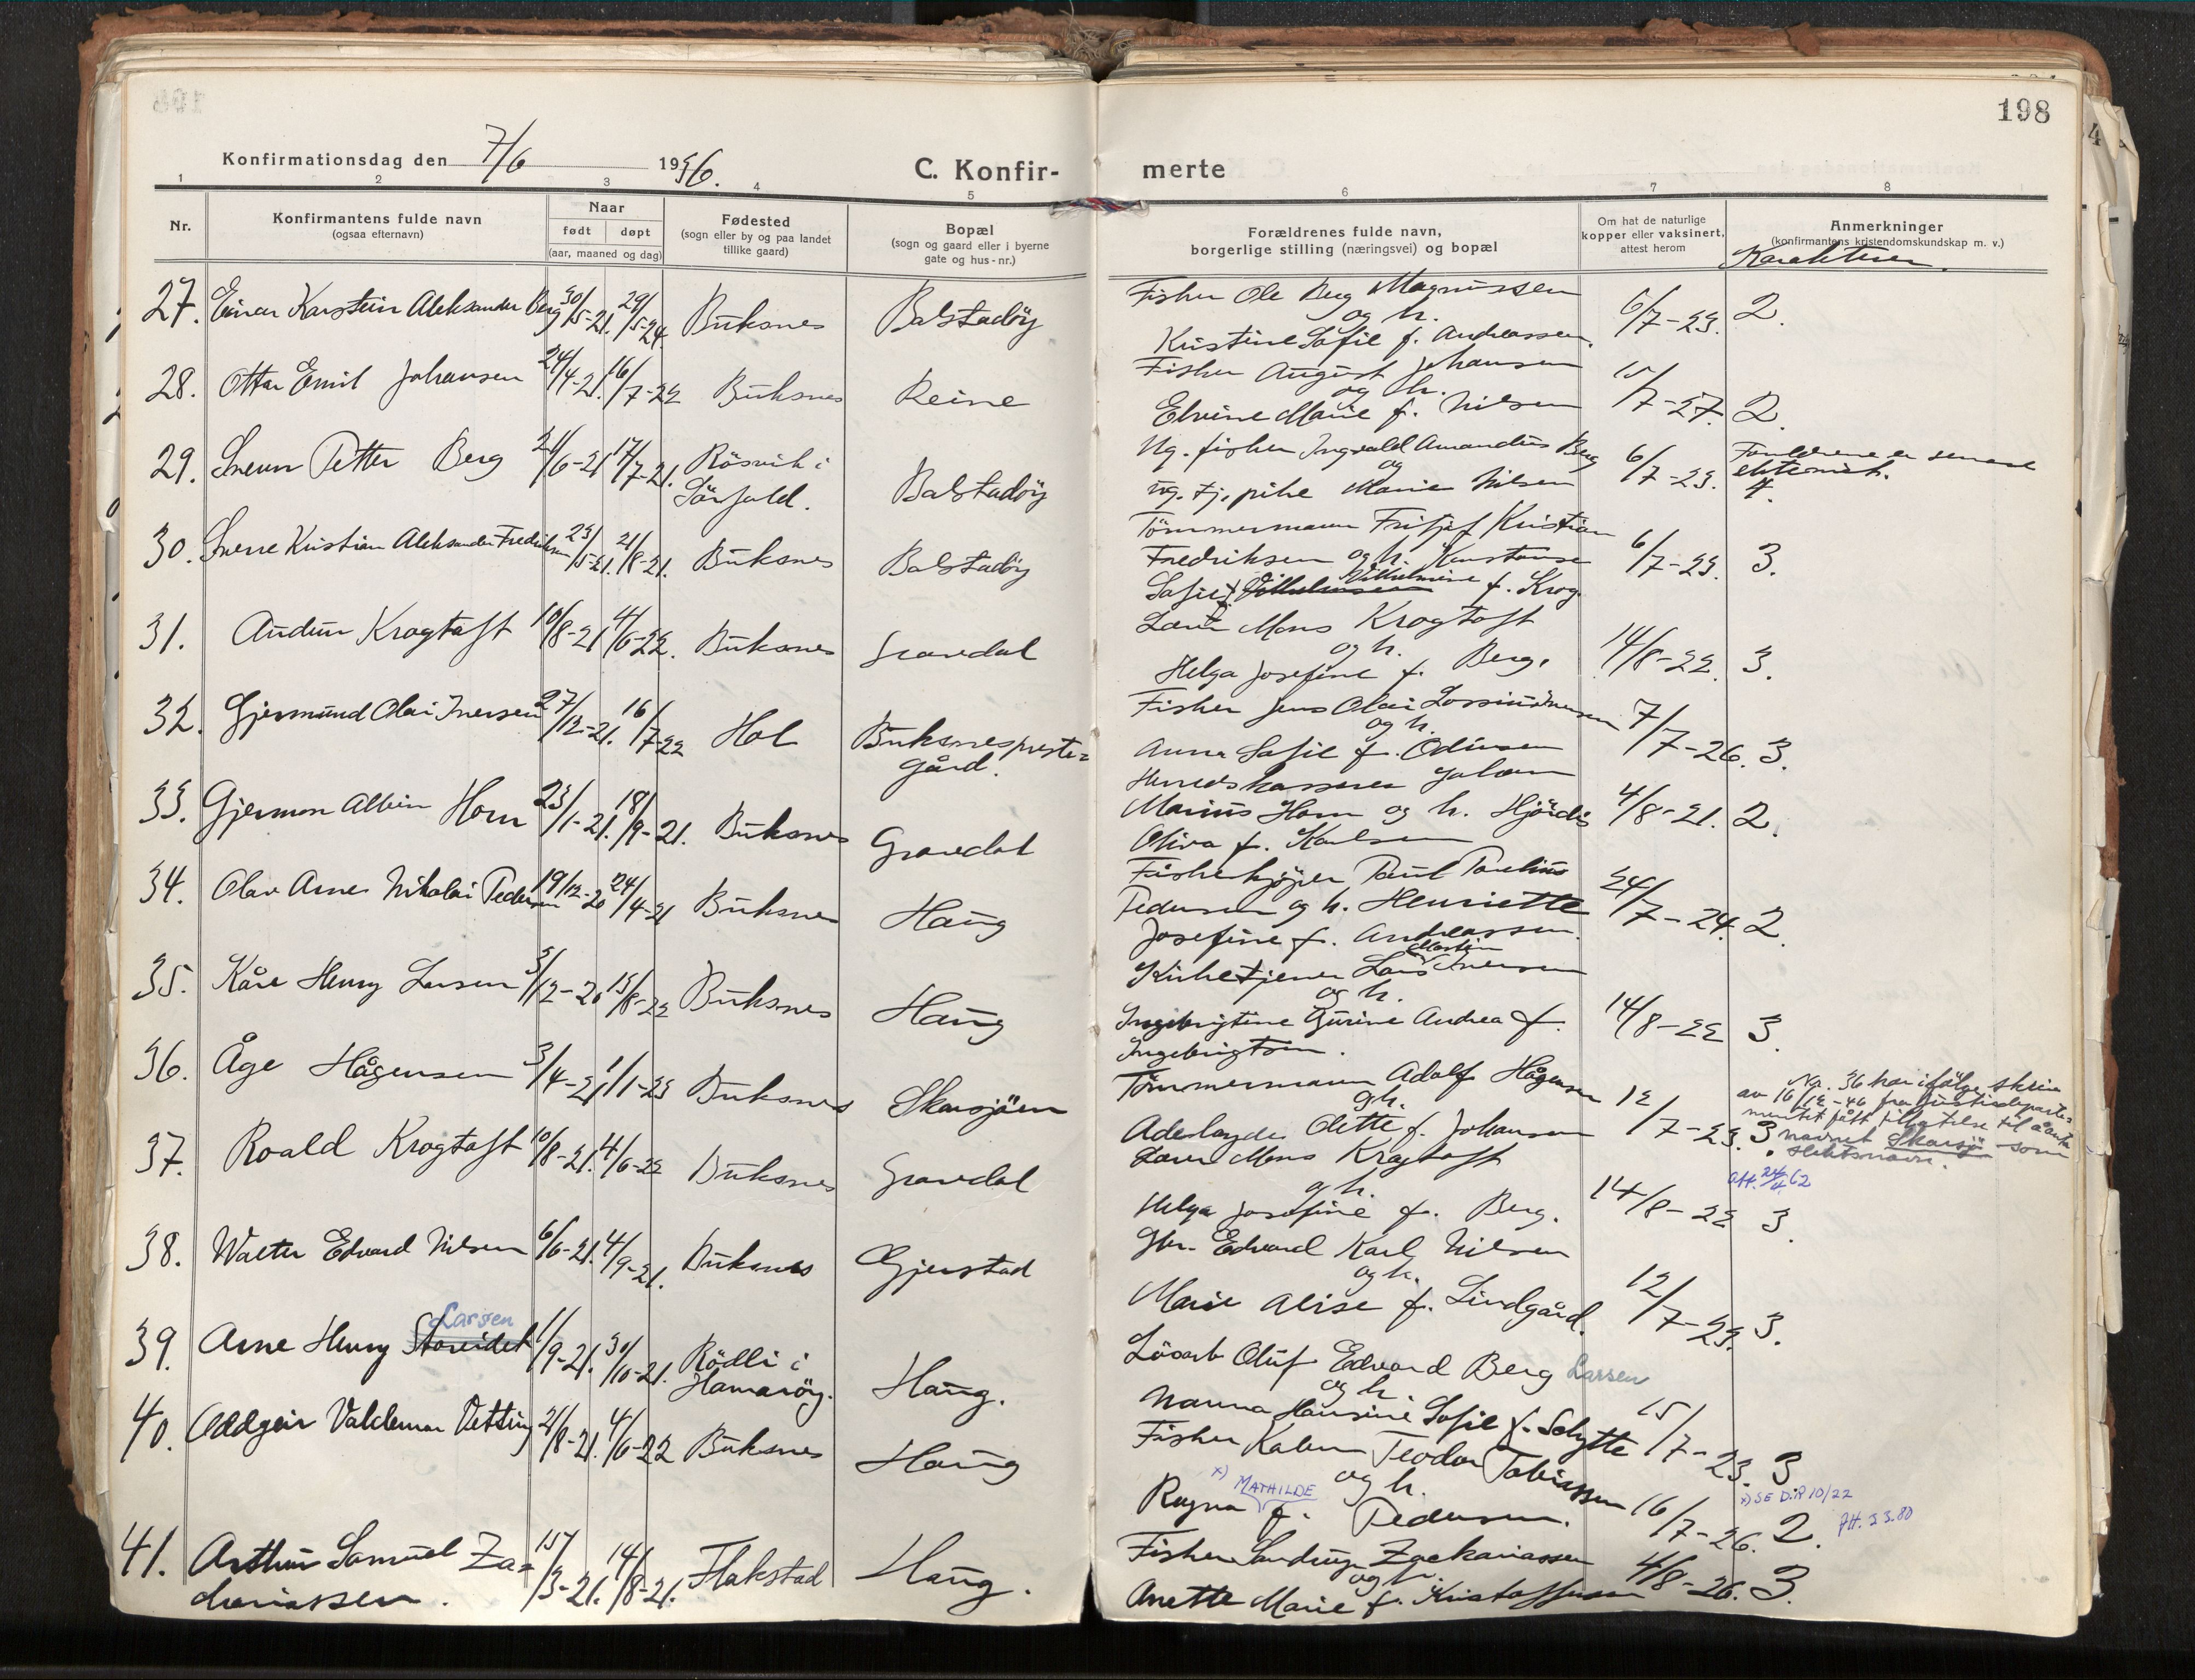 198
Konfirmationsdag den 7/6 1936.
C. Konfir-
merte
1 2 3 4 5 6 7 8
Nr.
Konfirmantens fulde navn
(ogsaa efternavn)
Naar
født døpt
(aar, maaned og dag)
Fødested
(sogn eller by og paa landet
tillike gaard)
Bopæl
(sogn og gaard eller i byerne
gate og hus-nr.)
Forældrenes fulde navn,
borgerlige stilling (næringsvei) og bopæl
Om hat de naturlige
kopper eller vaksinert,
attest herom
Anmerkninger
(konfirmantens kristendomskundskap m. v.)
Karakteren.
27. Einar Karstein Aleksander Berg 30/5-21. 29/5-24. Buksnes Balstadöy
Fisker Ole Berg Magnussen
og h.
Kristine Sofie f. Andreassen.
6/7-23. 2.
28. Ottar Emil Johansen 24/4-21. 16/7-22 Buksnes Reine
Fisker August Johansen
og h.
Elvine Marie f. Nilsen
15/7-27. 2.
29. Sverre Petter Berg 24/6-21 17/7-21. Rösvik i
Sörfold. Balstadöy
Ug. fisker Ingvald Amandus Berg
og
ug. tj. pike Marie Nilsen
6/7-23. Foreldrene er senere
ektevidd.
4.
30. Sverre Kristian Aleksander Fredriksen 23/5-21. 21/8-21. Buksnes Balstadöy
Tömmermann Fritjof Kristian
Fredriksen og h. Konstanse
Sofie Vilhelmine f. Krog
6/7-23. 3.
31. Audun Krogtoft 10/8-21 4/6-22. Buksnes Gravdal
Lærer Mons Krogtoft
og h.
Helga Josefine f. Berg.
14/8-22. 3.
32. Gjermund Olai Iversen 27/12-21. 16/7-22 Hol Buksnes preste-
gård.
Fisker Jens Olai Iversen
og h.
Anna Sofie f. Odinsen
7/7-26. 3.
33. Gjermon Albin Horn 23/1-21. 18/9-21. Buksnes Gravdal
Herredskasserer Johan
Marius Horn og h. Hjördis
Oliva f. Karlsen
4/8-21. 2.
34. Olav Arne Nikolai Pedersen 19/12-20 24/4-21 Buksnes Haug
Fiskekjöper Paul Paulius
Pedersen og h. Henriette
Josefine f. Andreassen.
24/7-24. 2.
35. Kåre Henry Larsen 5/12-20 15/8-22 Buksnes Haug
Martin
Kirketjener Lars Iversen
og h.
Ingebrigtine Gurine Andrea f.
Ingebrigtsen.
14/8-22 3.
36. Åge Hågensen 3/4-21 1/1-23 Buksnes Skarsjöen
Tömmermann Adolf Hågensen
og h.
Odette f. Johansen
12/7-23. 3.
Nr. 36 har ifölge skriv
av 16/12-46 fra Justisdeparte-
mentet fått tillatelse til å anta
navnet Skarsjö som
slektsnavn.
Att. 24/4 62
37. Roald Krogtoft 10/8-21. 4/6-22 Buksnes Gravdal
Lærer Mons Krogtoft
og h.
Helga Josefine f. Berg.
14/8-22 3.
38. Walter Edvard Nilsen 6/6-21. 4/9-21. Buksnes Gjerstad
Gbr. Edvard Karl Nilsen
og h.
Marie Alise f. Lindgård.
12/7-23. 3.
Larsen
39. Arne Henry Storeidet 1/9-21. 30/10-21. Rödli i
Hamaröy. Haug.
Lösarb Oluf Edvard Berg Larsen
og h.
Nanna Hansine Sofie f. Schytte
15/7-23. 3
40. Oddgeir Valdemar Vetting 21/8-21. 4/6-22 Buksnes Haug
Fisker Teodor Tobiassen
og h.
x) MATHILDE
Ragna f. Pedersen.
16/7-26. 2.
x) SE D.P 10/22
41. Arthur Samuel Za-
chariassen. 15/3-21. 14/8-21. Flakstad Haug.
Fisker Zackariassen
og h.
Anette Marie f. Kristoffersen
4/8-26. 3.